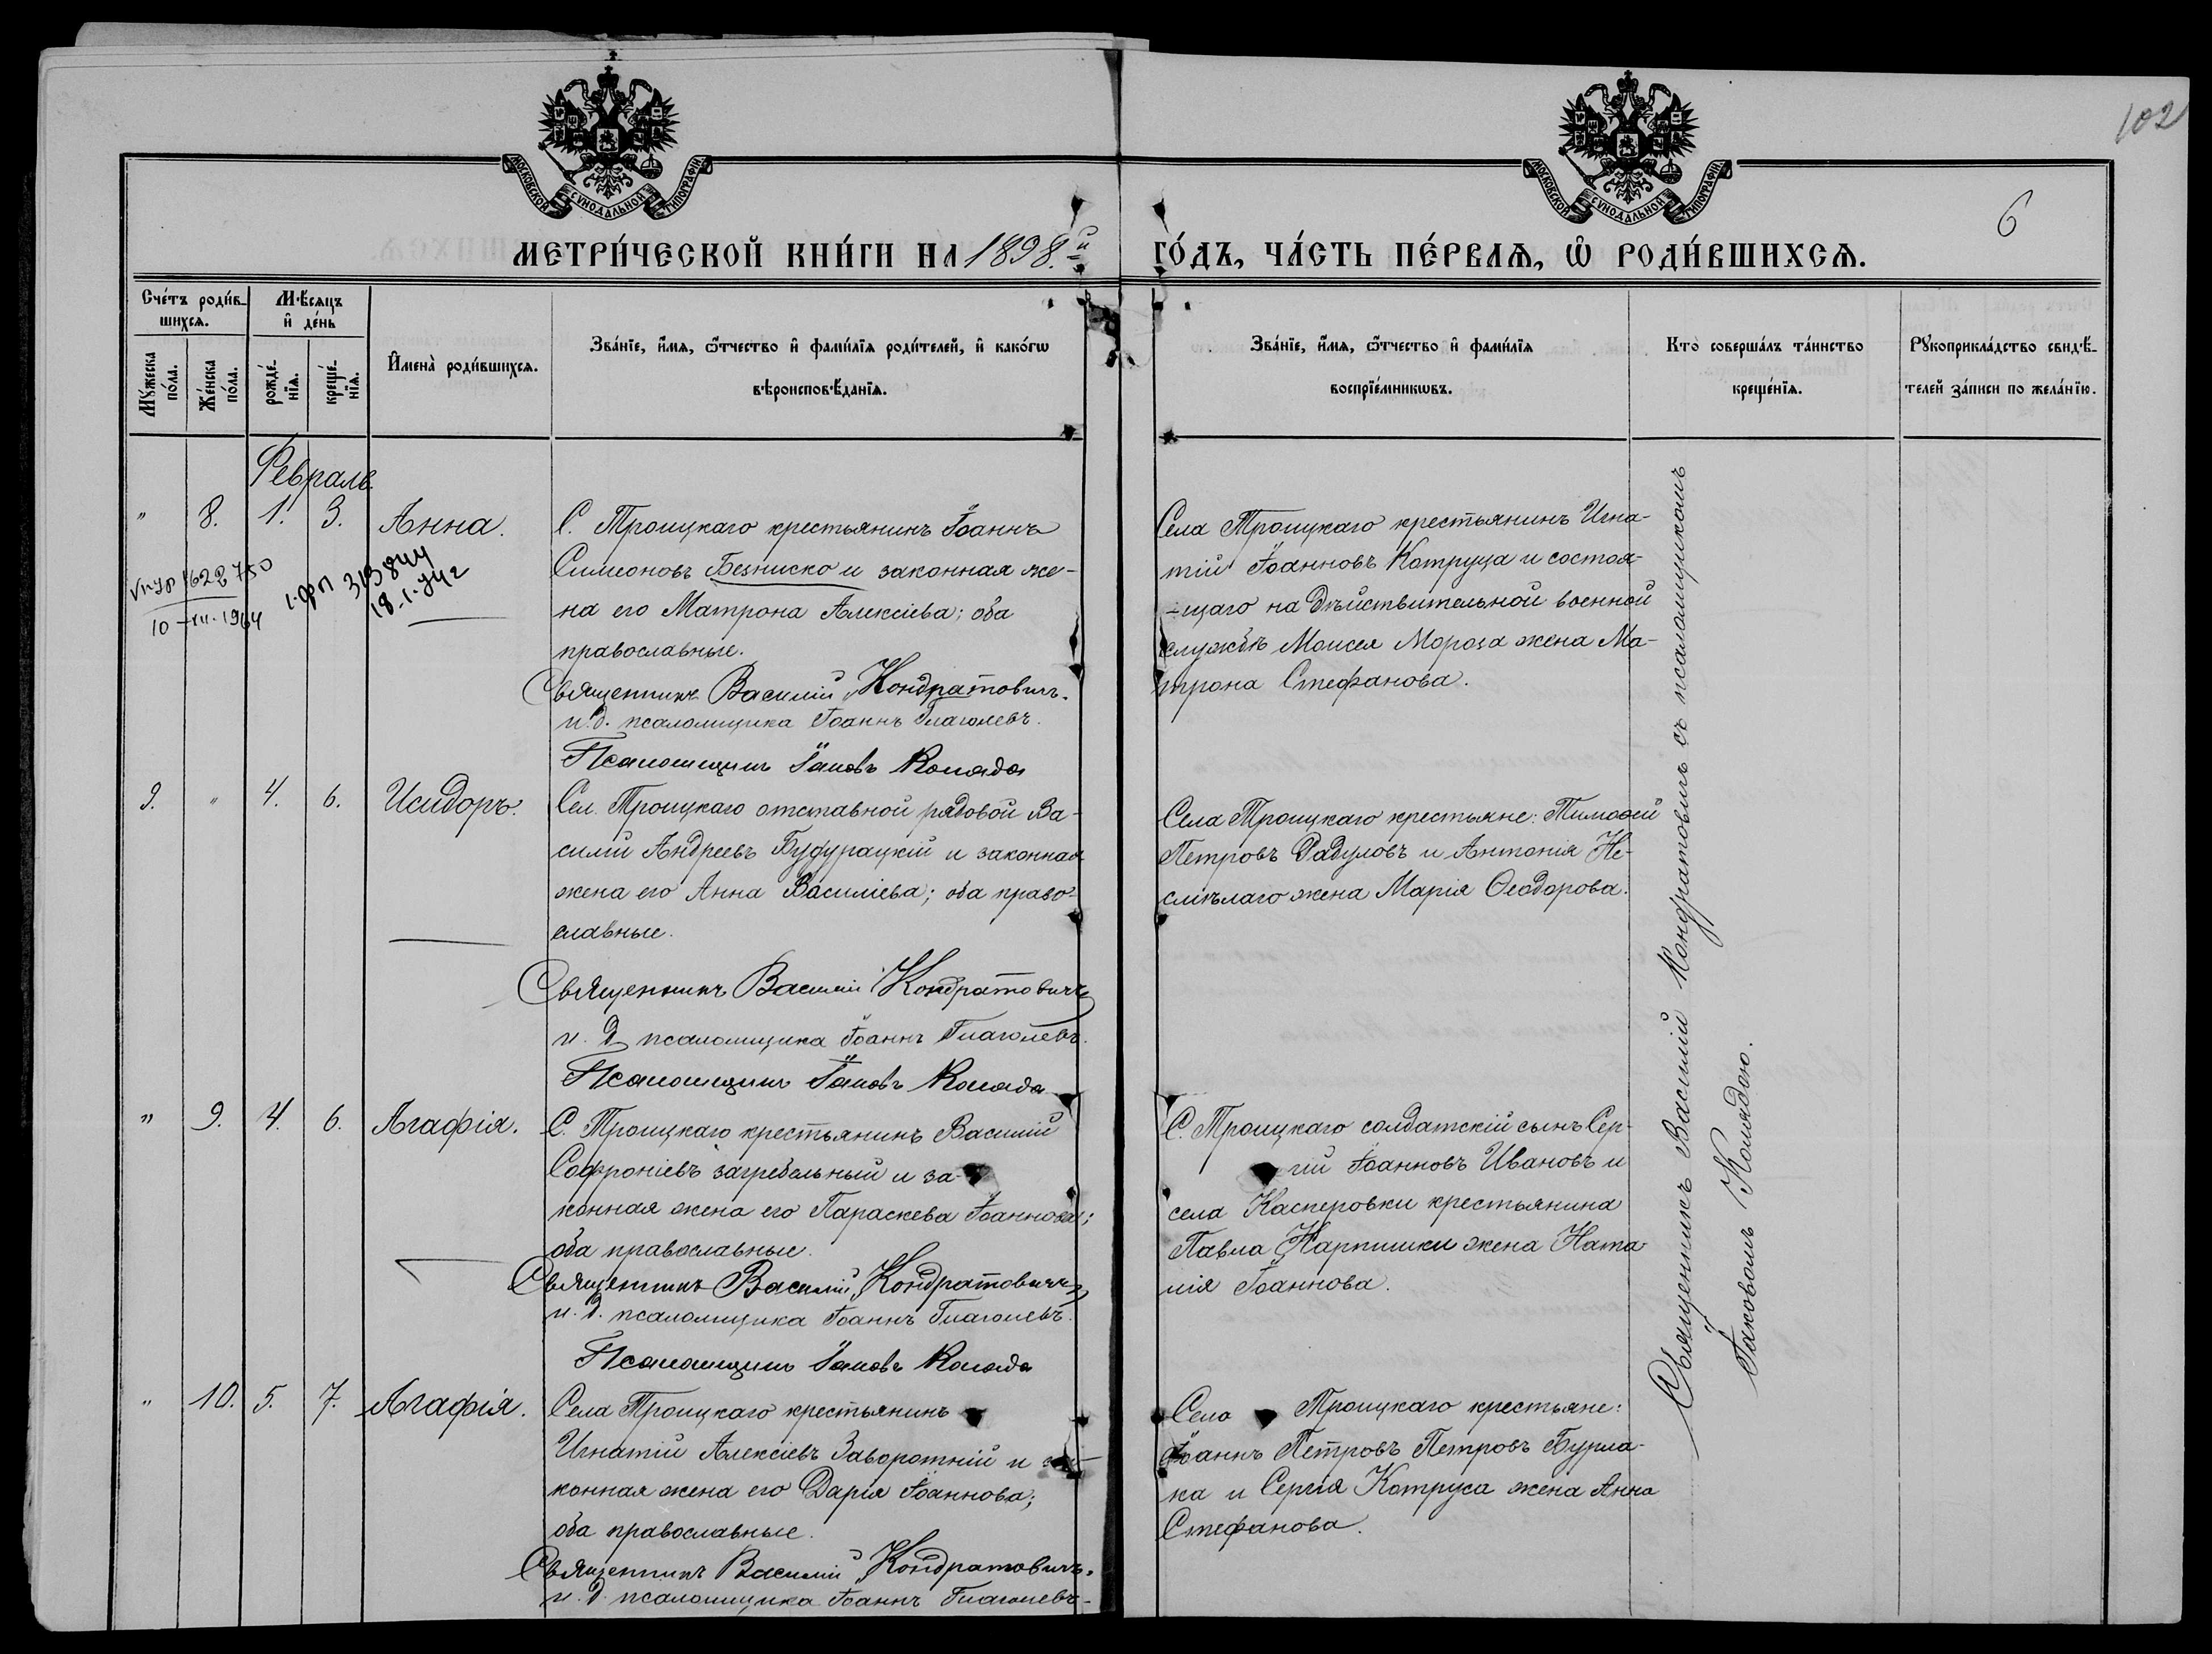 102
6
МОСКОВСКОЙ СѴНОДАЛЬНОЙ ТИПОГРАФІИ
МОСКОВСКОЙ СѴНОДАЛЬНОЙ ТИПОГРАФІИ
МЕТРИ́ЧЕСКОЙ КНИ́ГИ НА 1898.й ГО́ДЪ, ЧА́СТЬ ПЕ́РВАѦ, Ѡ҆ РОДИ́ВШИХСѦ.
Сче́тъ роди́в-
шихсѧ.
Мꙋ́жеска
по́ла.
Же́нска
по́ла.
М́ѣсѧцъ
и҆ де́нь
рожде́-
нїѧ.
креще́-
нїѧ.
И҆мена̀ роди́вшихсѧ.
Зва́нїе, и҆́мѧ, ѻ҆́тчество и҆ фами́лїѧ роди́телей, и҆ како́гѡ
вѣроисповѣ́данїѧ.
Зва́нїе, и҆́мѧ, ѻ҆́тчество и҆ фами́лїѧ
воспрїе́мникѡвъ.
Кто̀ соверша́лъ та́инство
креще́нїѧ.
Рꙋкоприкла́дство свидѣ́-
телей за́писи по жела́нїю.
Февраль
" 8. 1. 3. Анна.
С. Троицкаго крестьянинъ Іоаннъ
Симеоновъ Безниско и законная же-
на его Матрона Алексіева; оба
православные.
Священникъ Василій Кондратовичъ.
и. д. псаломщика Іоаннъ Глаголевъ.
Псаломщикъ Іаковъ Коляда
1622750
10-XII-1964
313844
18-1-
Села Троицкаго крестьянинъ Игна-
тій Іоанновъ Котруца и состоя-
-щаго на дѣйствительной военной
службѣ Моисея Мороза жена Ма-
трона Стефанова.
9. " 4. 6. Исидоръ.
Сел. Троицкаго отставной рядовой Ва-
силій Андреевъ Будурацкій и законная
жена его Анна Василіева; оба право-
славные.
Священникъ Василій Кондратовичъ
и. д. псаломщика Іоаннъ Глаголевъ.
Псаломщикъ Іаковъ Коляда
Села Троицкаго крестьяне: Тимоѳей
Петровъ Радуловъ и Антонія Не-
смѣлаго жена Марія Ѳеодорова.
" 9. 4. 6. Агафія.
С. Троицкаго крестьянинъ Василій
Софроніевъ Загребельный и за-
конная жена его Параскева Іоаннова;
оба православные.
Священникъ Василій Кондратовичъ
и. д. псаломщика Іоаннъ Глаголевъ.
Псаломщикъ Іаковъ Коляда
С. Троицкаго солдатскій сынъ Сер-
гій Іоанновъ Ивановъ и
села Касперовки крестьянина
Павла жена Ната-
лія Іоаннова.
" 10. 5. 7. Агафія.
Села Троицкаго крестьянинъ
Игнатій Алексіевъ Заворотній и за-
конная жена его Дарія Іоаннова;
оба православные.
Священникъ Василій Кондратовичъ.
и. д. псаломщика Іоаннъ Глаголевъ-
Село Троицкаго крестьяне:
Іоаннъ Петровъ Петровъ Бурла-
ка и Сергія Котруса жена Анна
Стефанова.
Священникъ Василій Кондратовичъ съ псаломщикомъ
Іаковомъ Колядою.